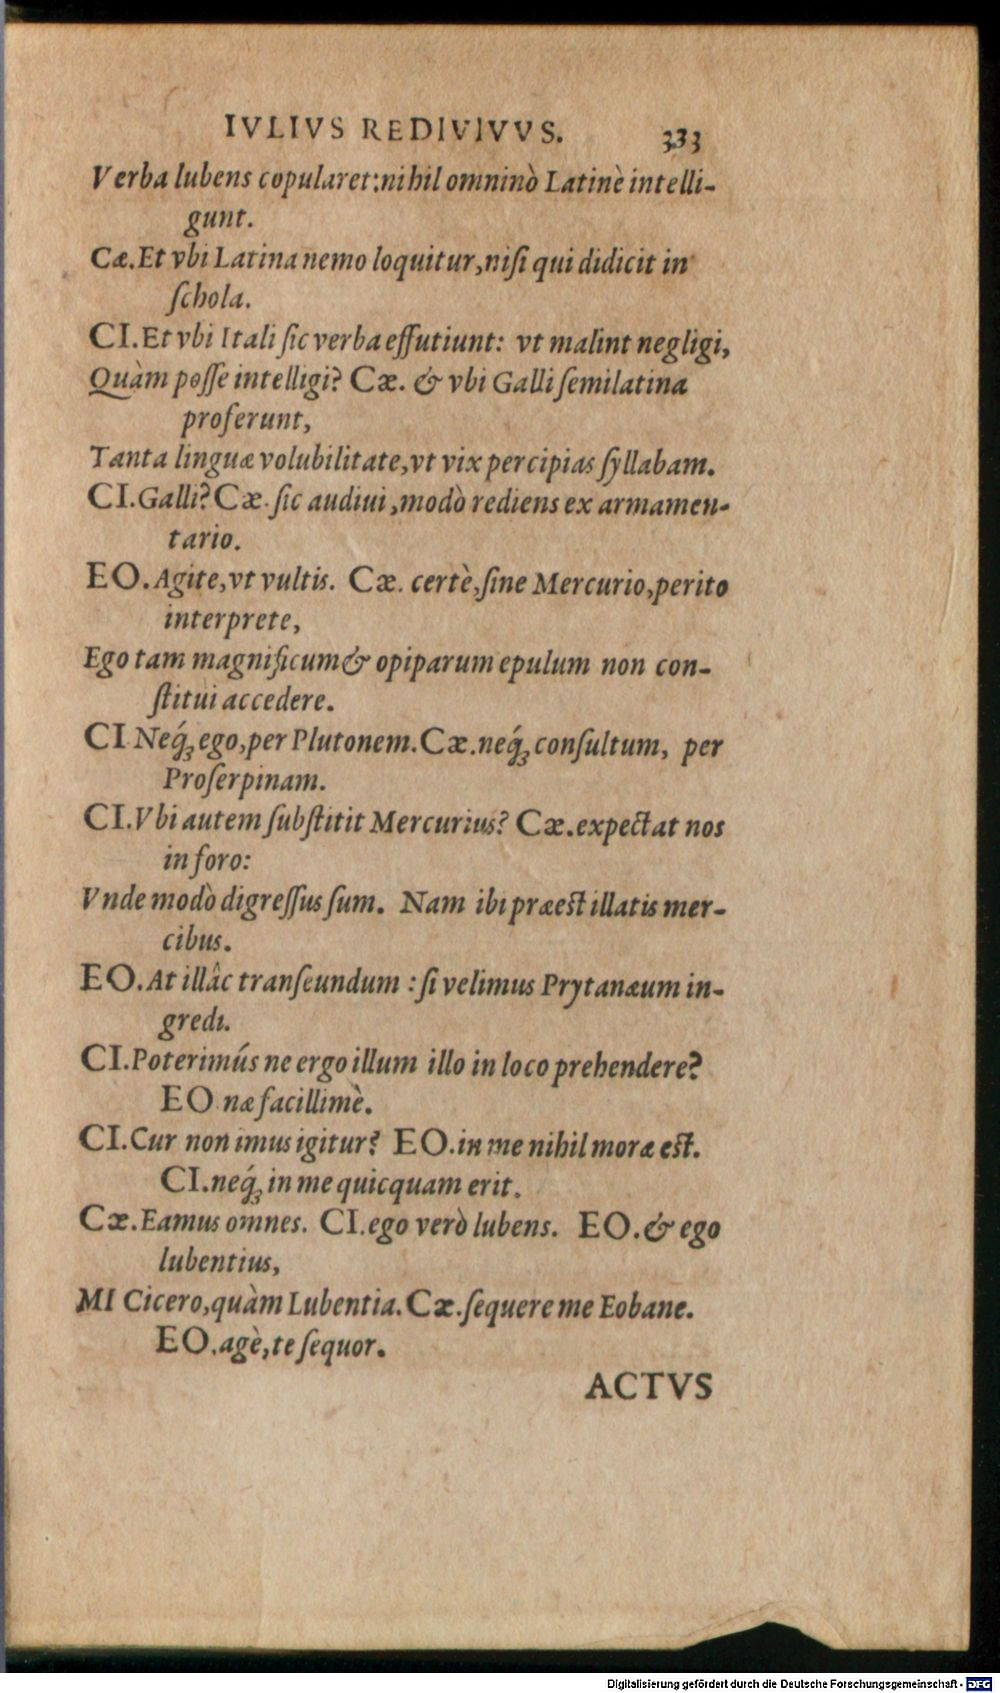 IVLIVS REDIVIVVS. 333
Verba lubens copularet: nihil omninò Latinè intelli-
gunt.
Cæ. Et vbi Latina nemo loquitur, niſi qui didicit in
ſchola.
CI. Et vbi Itali ſic verba effutiunt: vt malint negligi,
Quàm poſſe intelligi? Cæ. & vbi Galli ſemilatina
proferunt,
Tanta linguæ volubilitate, vt vix percipias ſyllabam.
CI. Galli? Cæ. ſic audiui, modò rediens ex armamen-
tario.
EO. Agite, vt vultis. Cæ. certè, ſine Mercurio, perito
interprete,
Ego tam magnificum & opiparum epulum non con-
ſtitui accedere.
CI Neq́ꝫ ego, per Plutonem. Cæ. neq́ꝫ conſultum, per
Proſerpinam.
CI. Vbi autem ſubſtitit Mercurius? Cæ. expectat nos
in foro:
Vnde modò digreſſus ſum. Nam ibi præest illatis mer-
cibus.
EO. At illâc tranſeundum : ſi velimus Prytanæum in-
gredi.
CI. Poterimús ne ergo illum illo in loco prehendere?
EO næ facillimè.
CI. Cur non imus igitur? EO. in me nihil moræ est.
CI. neq́ꝫ in me quicquam erit.
Cæ. Eamus omnes. CI. ego verò lubens. EO. & ego
lubentius,
MI Cicero, quàm Lubentia. Cæ. ſequere me Eobane.
EO. agè, te ſequor.
ACTVS
Digitalisierung gefördert durch die Deutsche Forschungsgemeinschaft - DFG